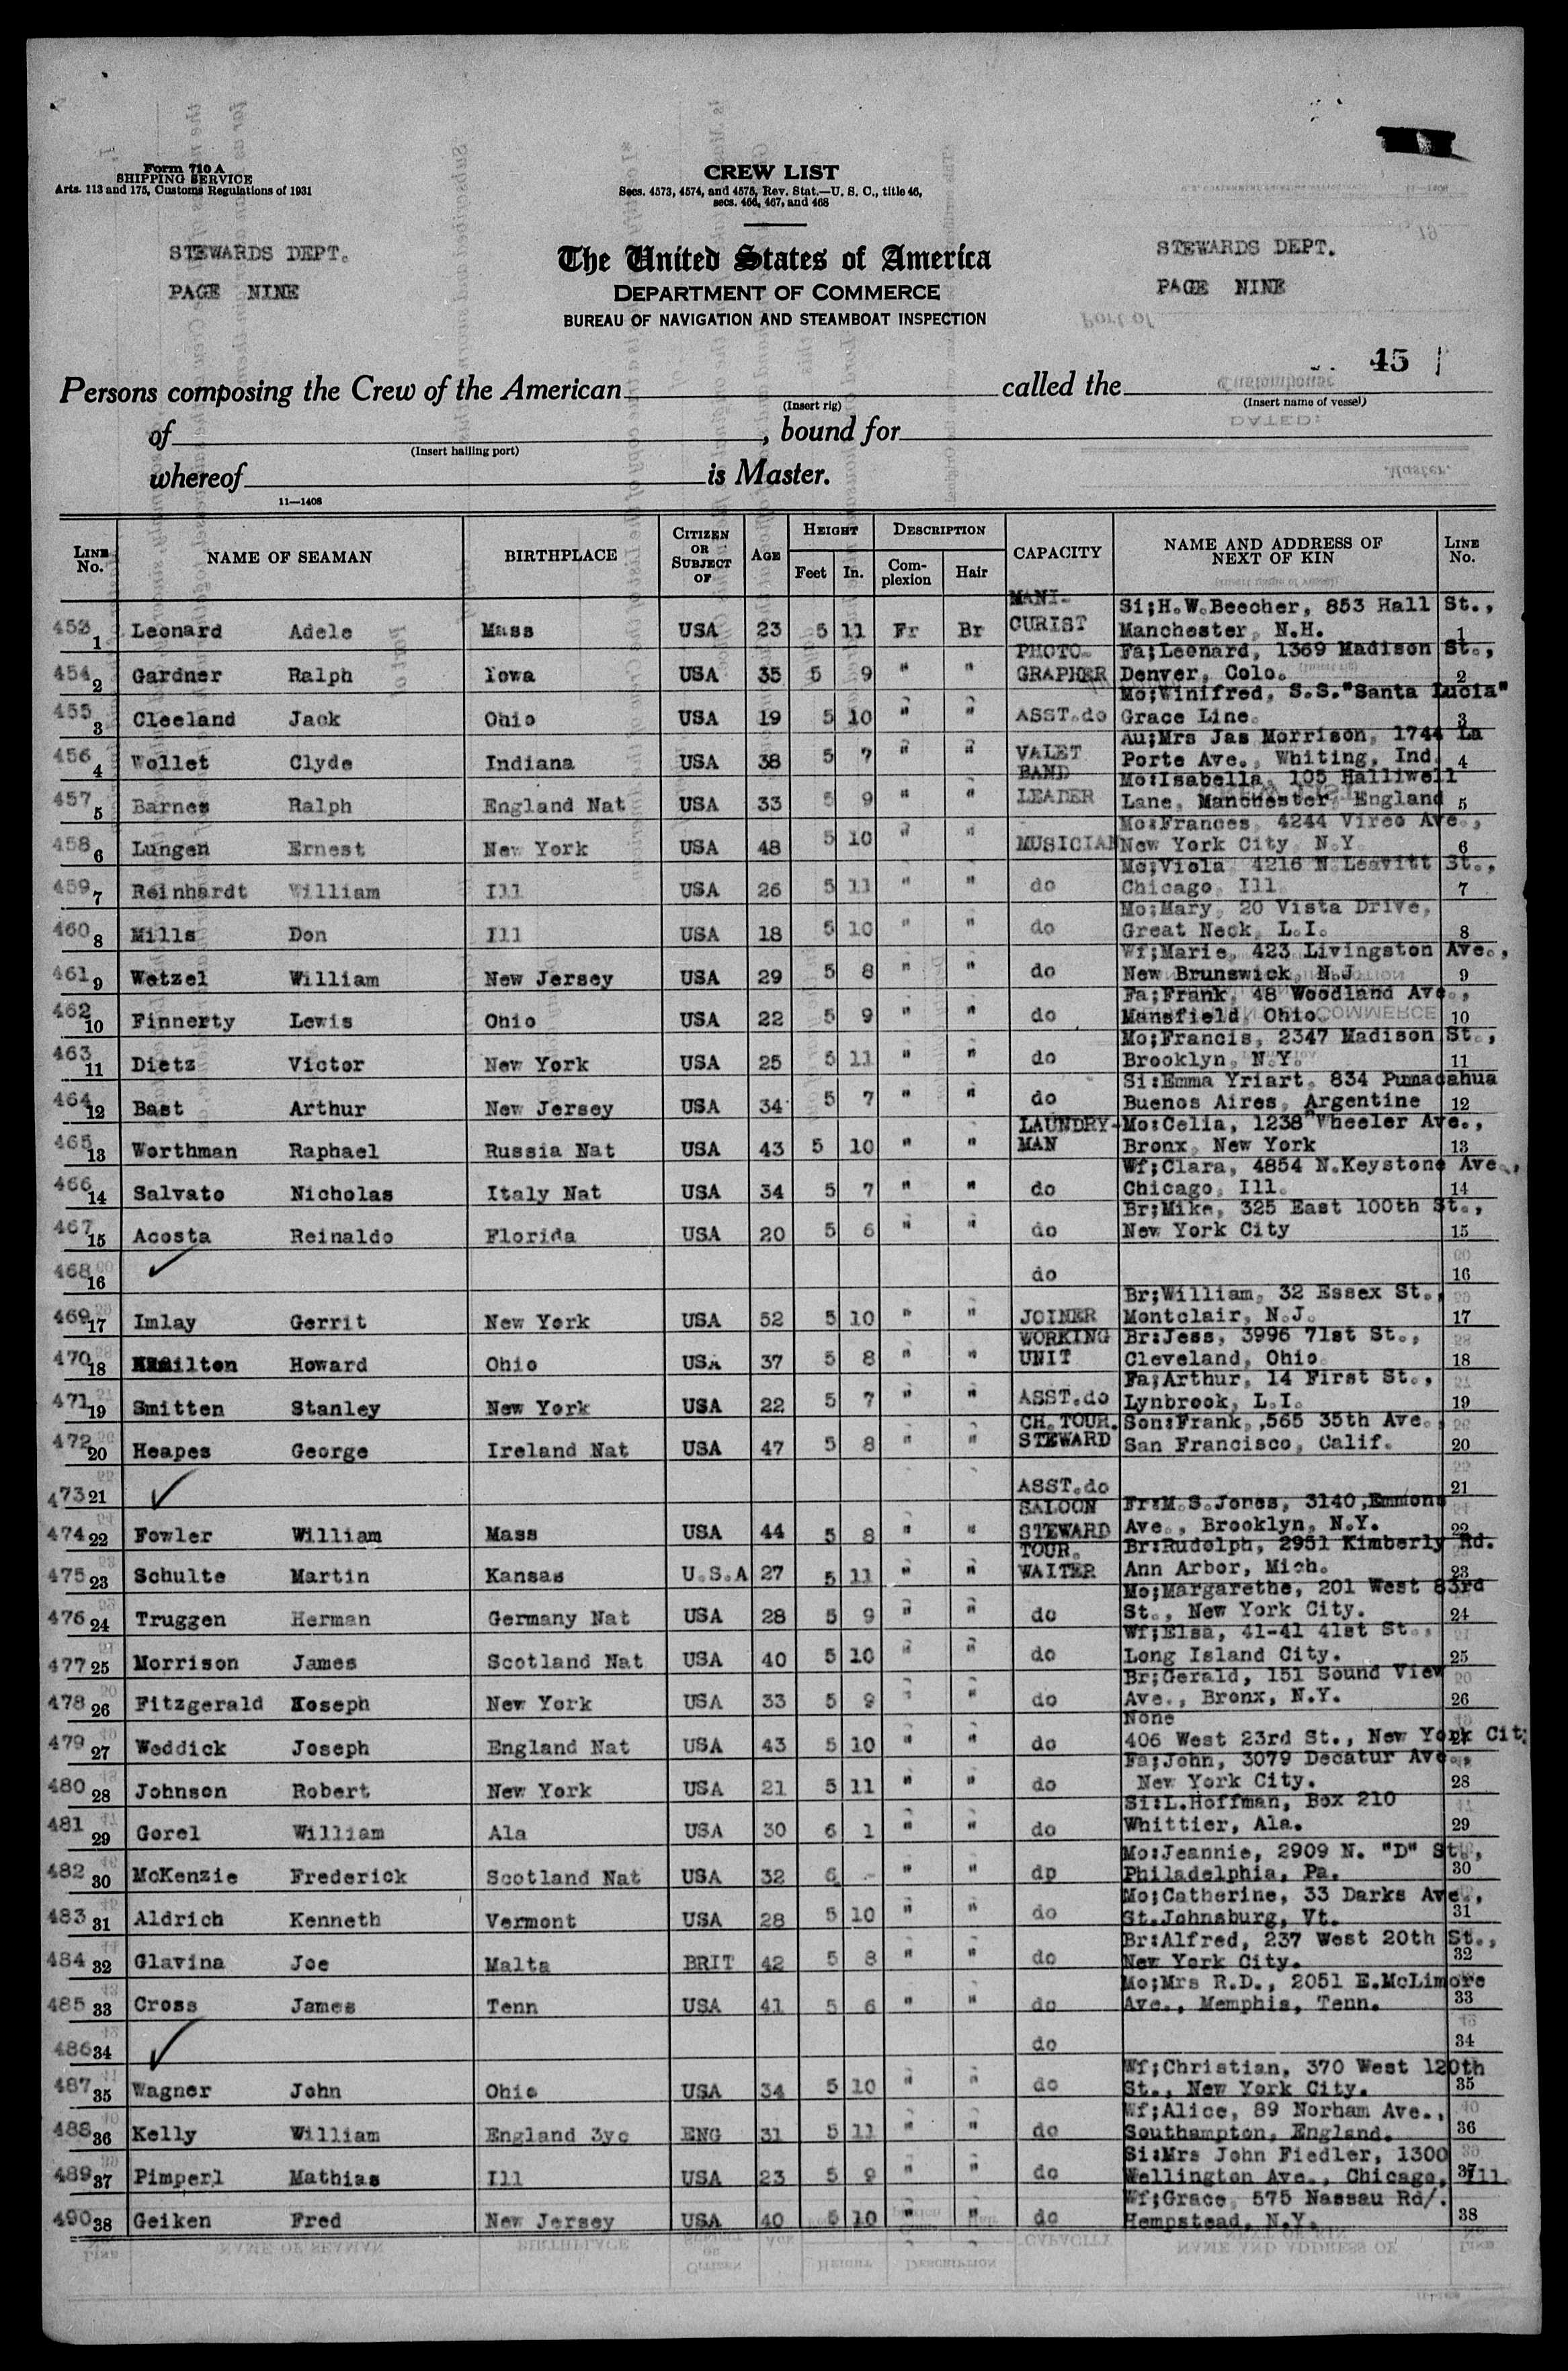 Form 710 A
SHIPPING SERVICE
Arts. 113 and 175, Customs Regulations of 1931
CREW LIST
Secs. 4573, 4574, and 4575, Rev. Stat.—U. S. C., title 46,
secs. 466, 467, and 468
STEWARDS DEPT.
PAGE NINE
The United States of America
DEPARTMENT OF COMMERCE
BUREAU OF NAVIGATION AND STEAMBOAT INSPECTION
STEWARDS DEPT.
PAGE NINE
45
Persons composing the Crew of the American called the
(Insert rig) (Insert name of vessel)
of , bound for
(Insert hailing port)
whereof is Master.
11—1408
LINE No. NAME OF SEAMAN BIRTHPLACE CITIZEN OR SUBJECT OF AGE HEIGHT Feet In. DESCRIPTION Complexion Hair CAPACITY NAME AND ADDRESS OF NEXT OF KIN LINE No.
453 1 Leonard Adele Mass USA 23 5 11 Fr Br MANI-CURIST Si;H.W.Beecher, 853 Hall St., Manchester, N.H. 1
454 2 Gardner Ralph Iowa USA 35 5 9 " " PHOTO-GRAPHER Fa;Leonard, 1369 Madison St., Denver, Colo. 2
455 3 Cleeland Jack Ohio USA 19 5 10 " " ASST.do Mo;Winifred, S.S."Santa Lucia" Grace Line. 3
456 4 Wollet Clyde Indiana USA 38 5 7 " " VALET Au;Mrs Jas Morrison, 1744 La Porte Ave., Whiting, Ind. 4
457 5 Barnes Ralph England Nat USA 33 5 9 " " BAND LEADER Mo:Isabella, 105 Halliwell Lane, Manchester, England 5
458 6 Lungen Ernest New York USA 48 5 10 " " MUSICIAN Mo:Frances, 4244 Vireo Ave., New York City, N.Y. 6
459 7 Reinhardt William Ill USA 26 5 11 " " do Mo;Viola 4216 N.Leavitt St., Chicago, Ill. 7
460 8 Mills Don Ill USA 18 5 10 " " do Mo;Mary, 20 Vista Drive, Great Neck, L.I. 8
461 9 Wetzel William New Jersey USA 29 5 8 " " do Wf;Marie, 423 Livingston Ave., New Brunswick, N.J. 9
462 10 Finnerty Lewis Ohio USA 22 5 9 " " do Fa;Frank, 48 Woodland Ave., Mansfield, Ohio. 10
463 11 Dietz Victor New York USA 25 5 11 " " do Mo;Francis, 2347 Madison St., Brooklyn, N.Y. 11
464 12 Bast Arthur New Jersey USA 34 5 7 " " do Si:Emma Yriart, 834 Pumacahua Buenos Aires, Argentine 12
465 13 Worthman Raphael Russia Nat USA 43 5 10 " " LAUNDRY-MAN Mo:Celia, 1238 Wheeler Ave., Bronx, New York 13
466 14 Salvato Nicholas Italy Nat USA 34 5 7 " " do Wf;Clara, 4854 N.Keystone Ave., Chicago, Ill. 14
467 15 Acosta Reinaldo Florida USA 20 5 6 " " do Br;Mike, 325 East 100th St., New York City 15
468 16 ✓ do 16
469 17 Imlay Gerrit New York USA 52 5 10 " " JOINER Br;William, 32 Essex St., Montclair, N.J. 17
470 18 Hamilton Howard Ohio USA 37 5 8 " " WORKING UNIT Br:Jess, 3996 71st St., Cleveland, Ohio 18
471 19 Smitten Stanley New York USA 22 5 7 " " ASST.do Fa;Arthur, 14 First St., Lynbrook, L.I. 19
472 20 Heapes George Ireland Nat USA 47 5 8 " " CH.TOUR. STEWARD Son:Frank,,565 35th Ave., San Francisco, Calif. 20
473 21 ✓ ASST.do 21
474 22 Fowler William Mass USA 44 5 8 " " SALOON STEWARD Fr:M.S.Jones, 3140,Emmons Ave., Brooklyn, N.Y. 22
475 23 Schulte Martin Kansas U.S.A 27 5 11 " " TOUR. WAITER Br:Rudolph, 2951 Kimberly Rd. Ann Arbor, Mich. 23
476 24 Truggen Herman Germany Nat USA 28 5 9 " " do Mo;Margarethe, 201 West 83rd St., New York City. 24
477 25 Morrison James Scotland Nat USA 40 5 10 " " do Wf;Elsa, 41-41 41st St., Long Island City. 25
478 26 Fitzgerald Joseph New York USA 33 5 9 " " do Br;Gerald, 151 Sound View Ave., Bronx, N.Y. 26
479 27 Weddick Joseph England Nat USA 43 5 10 " " do None 406 West 23rd St., New York City 27
480 28 Johnson Robert New York USA 21 5 11 " " do Fa;John, 3079 Decatur Ave., New York City. 28
481 29 Gorel William Ala USA 30 6 1 " " do Si:L.Hoffman, Box 210 Whittier, Ala. 29
482 30 McKenzie Frederick Scotland Nat USA 32 6 - " " do Mo:Jeannie, 2909 N. "D" St., Philadelphia, Pa. 30
483 31 Aldrich Kenneth Vermont USA 28 5 10 " " do Mo;Catherine, 33 Darks Ave., St.Johnsburg, Vt. 31
484 32 Glavina Joe Malta BRIT 42 5 8 " " do Br:Alfred, 237 West 20th St., New York City. 32
485 33 Cross James Tenn USA 41 5 6 " " do Mo;Mrs R.D., 2051 E.McLimore Ave., Memphis, Tenn. 33
486 34 ✓ do 34
487 35 Wagner John Ohio USA 34 5 10 " " do Wf;Christian, 370 West 120th St., New York City. 35
488 36 Kelly William England 3yc ENG 31 5 11 " " do Wf;Alice, 89 Norham Ave., Southampton, England. 36
489 37 Pimperl Mathias Ill USA 23 5 9 " " do Si:Mrs John Fiedler, 1300 Wellington Ave., Chicago, Ill. 37
490 38 Geiken Fred New Jersey USA 40 5 10 " " do Wf;Grace, 575 Nassau Rd/. Hempstead, N.Y. 38